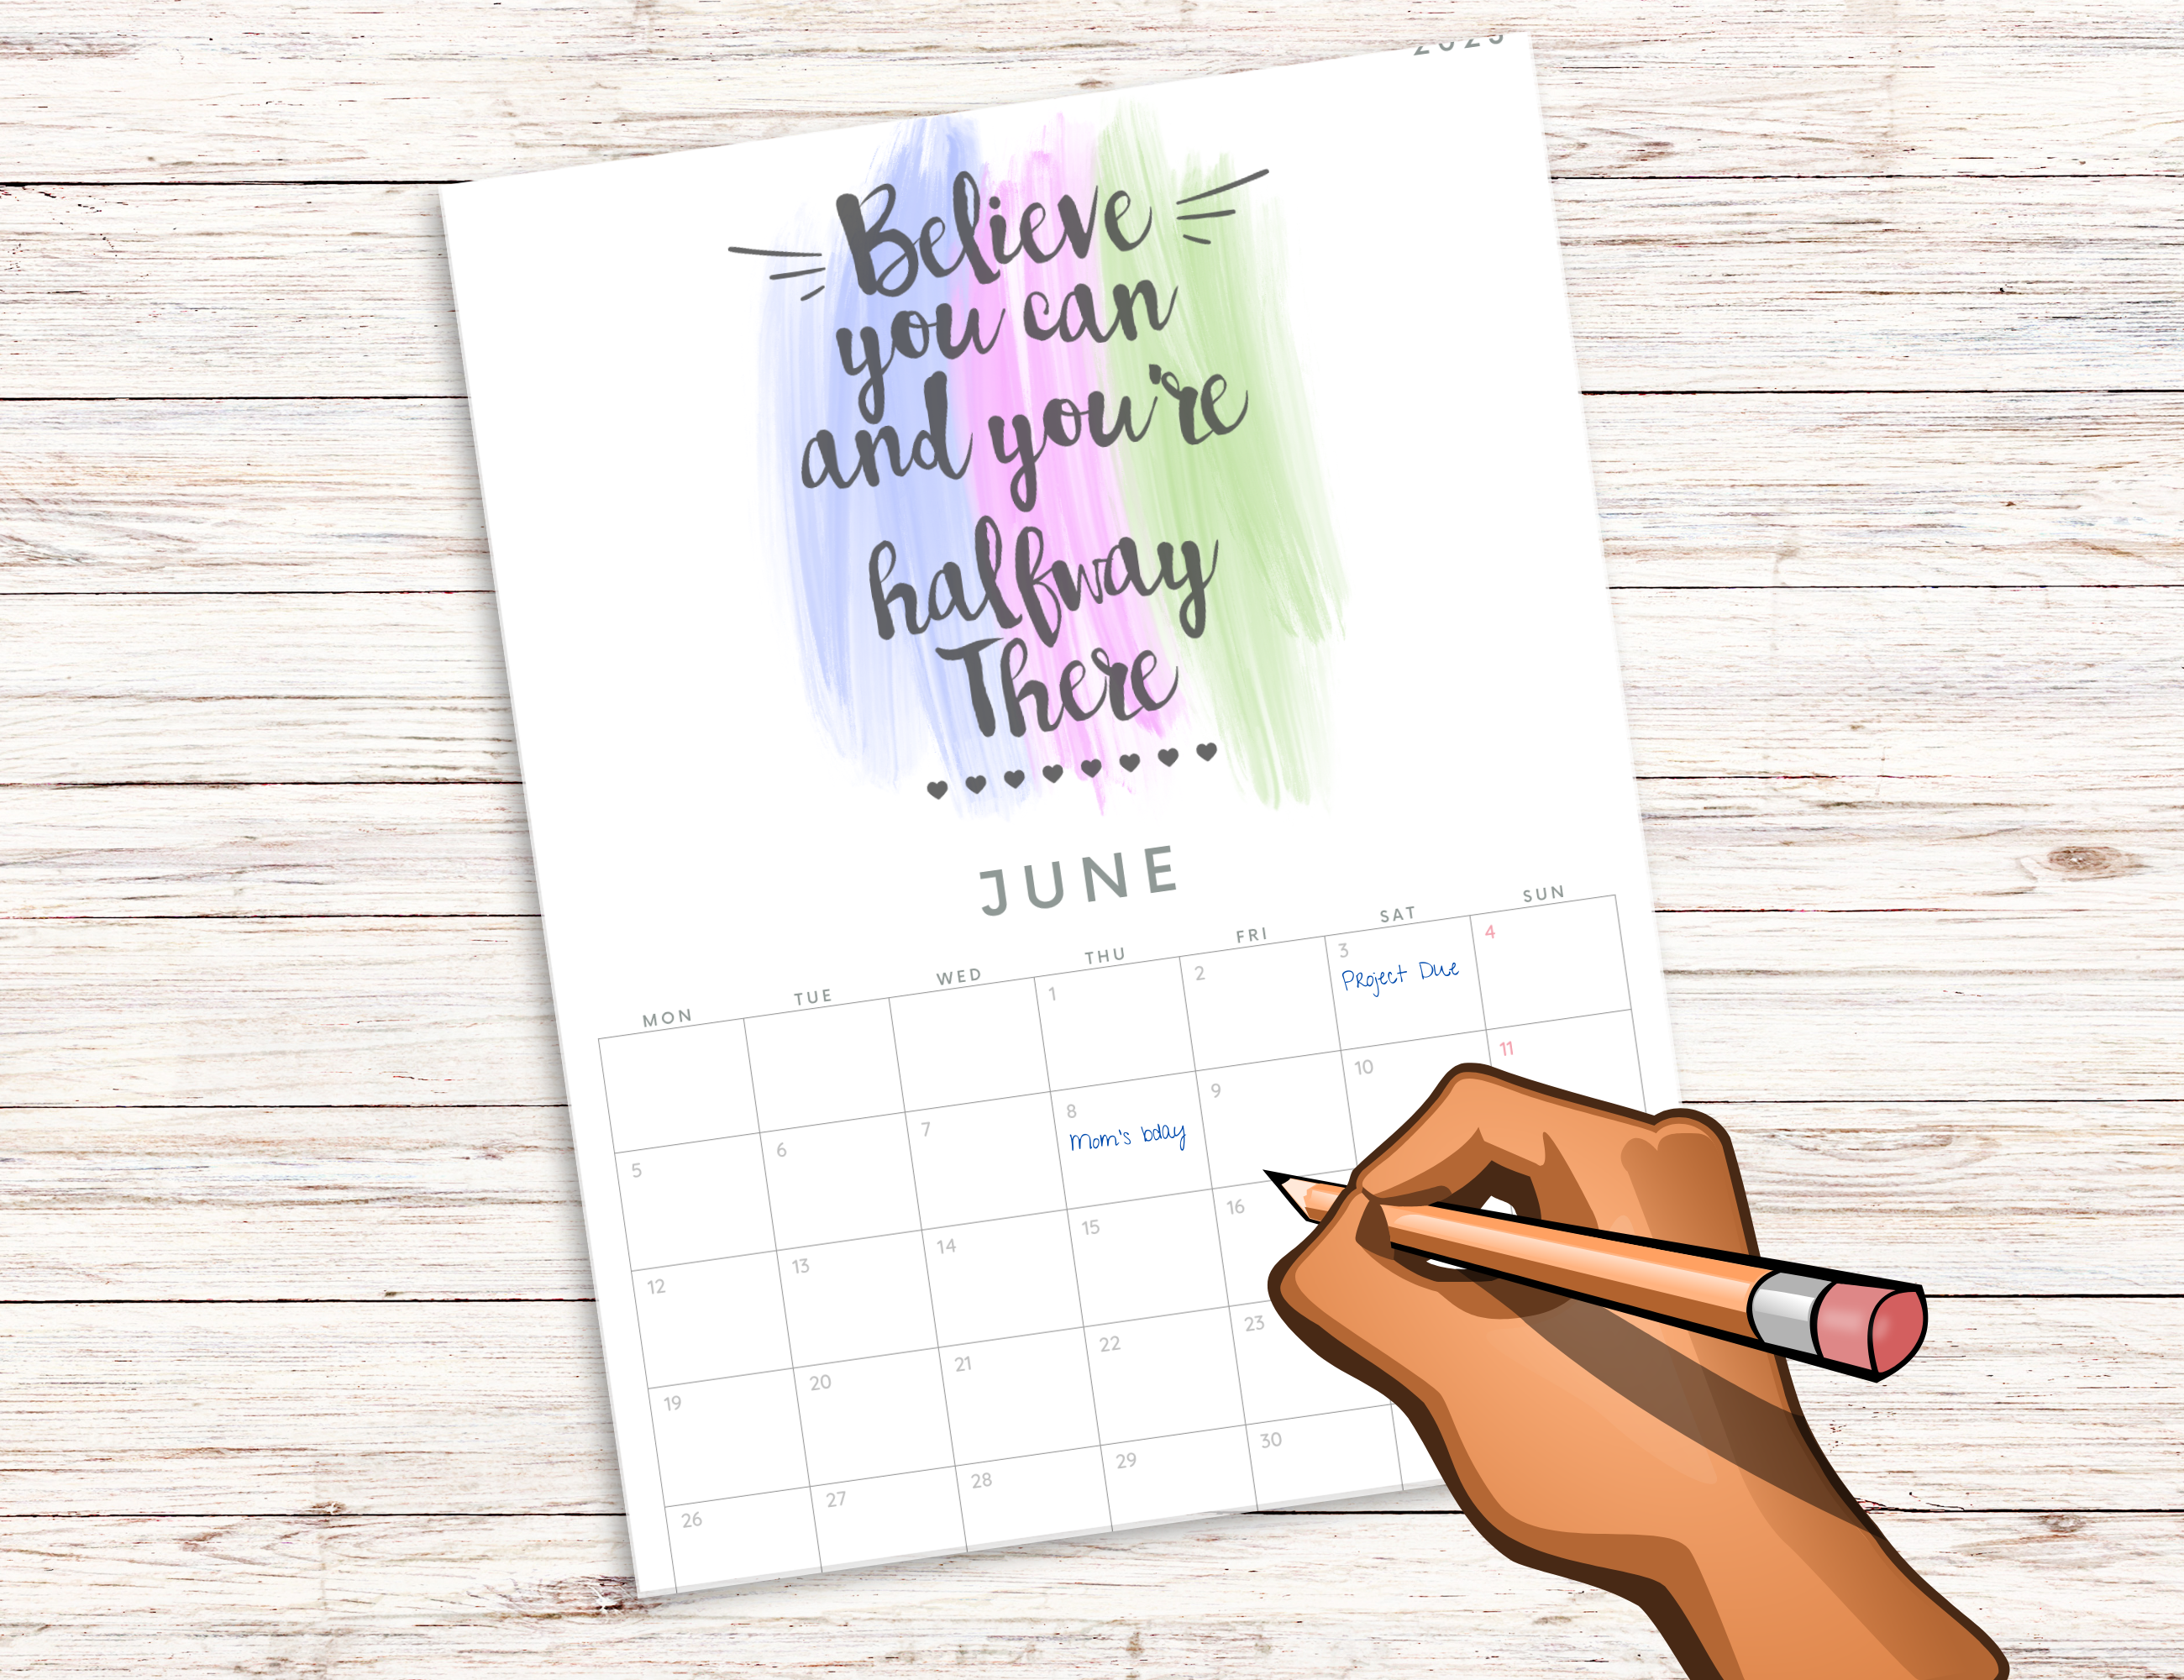 2023
Believe
you can
and you're
halfway
There
JUNE
MON TUE WED THU FRI SAT SUN
1 2 3 4
Project Due
5 6 7 8 9 10 11
Mom's bday
12 13 14 15 16
19 20 21 22 23
26 27 28 29 30